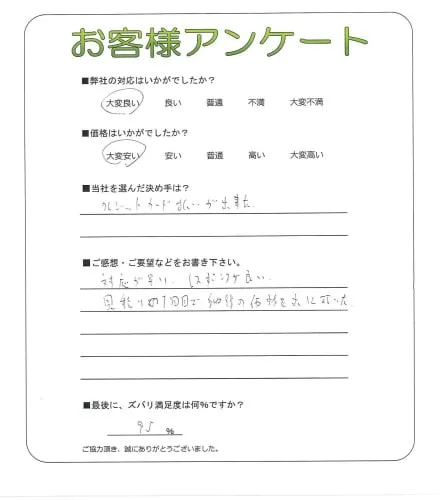 お客様アンケート
■弊社の対応はいかがでしたか？
大変良い 良い 普通 不満 大変不満
■価格はいかがでしたか？
大変安い 安い 普通 高い 大変高い
■当社を選んだ決め手は？
クレジットカード払いが出来た.
■ご感想・ご要望などをお書き下さい。
対応が早い. が良い.
見積り 1回目で 価格を出して
■最後に、ズバリ満足度は何％ですか？
95 %
ご協力頂き、誠にありがとうございました。